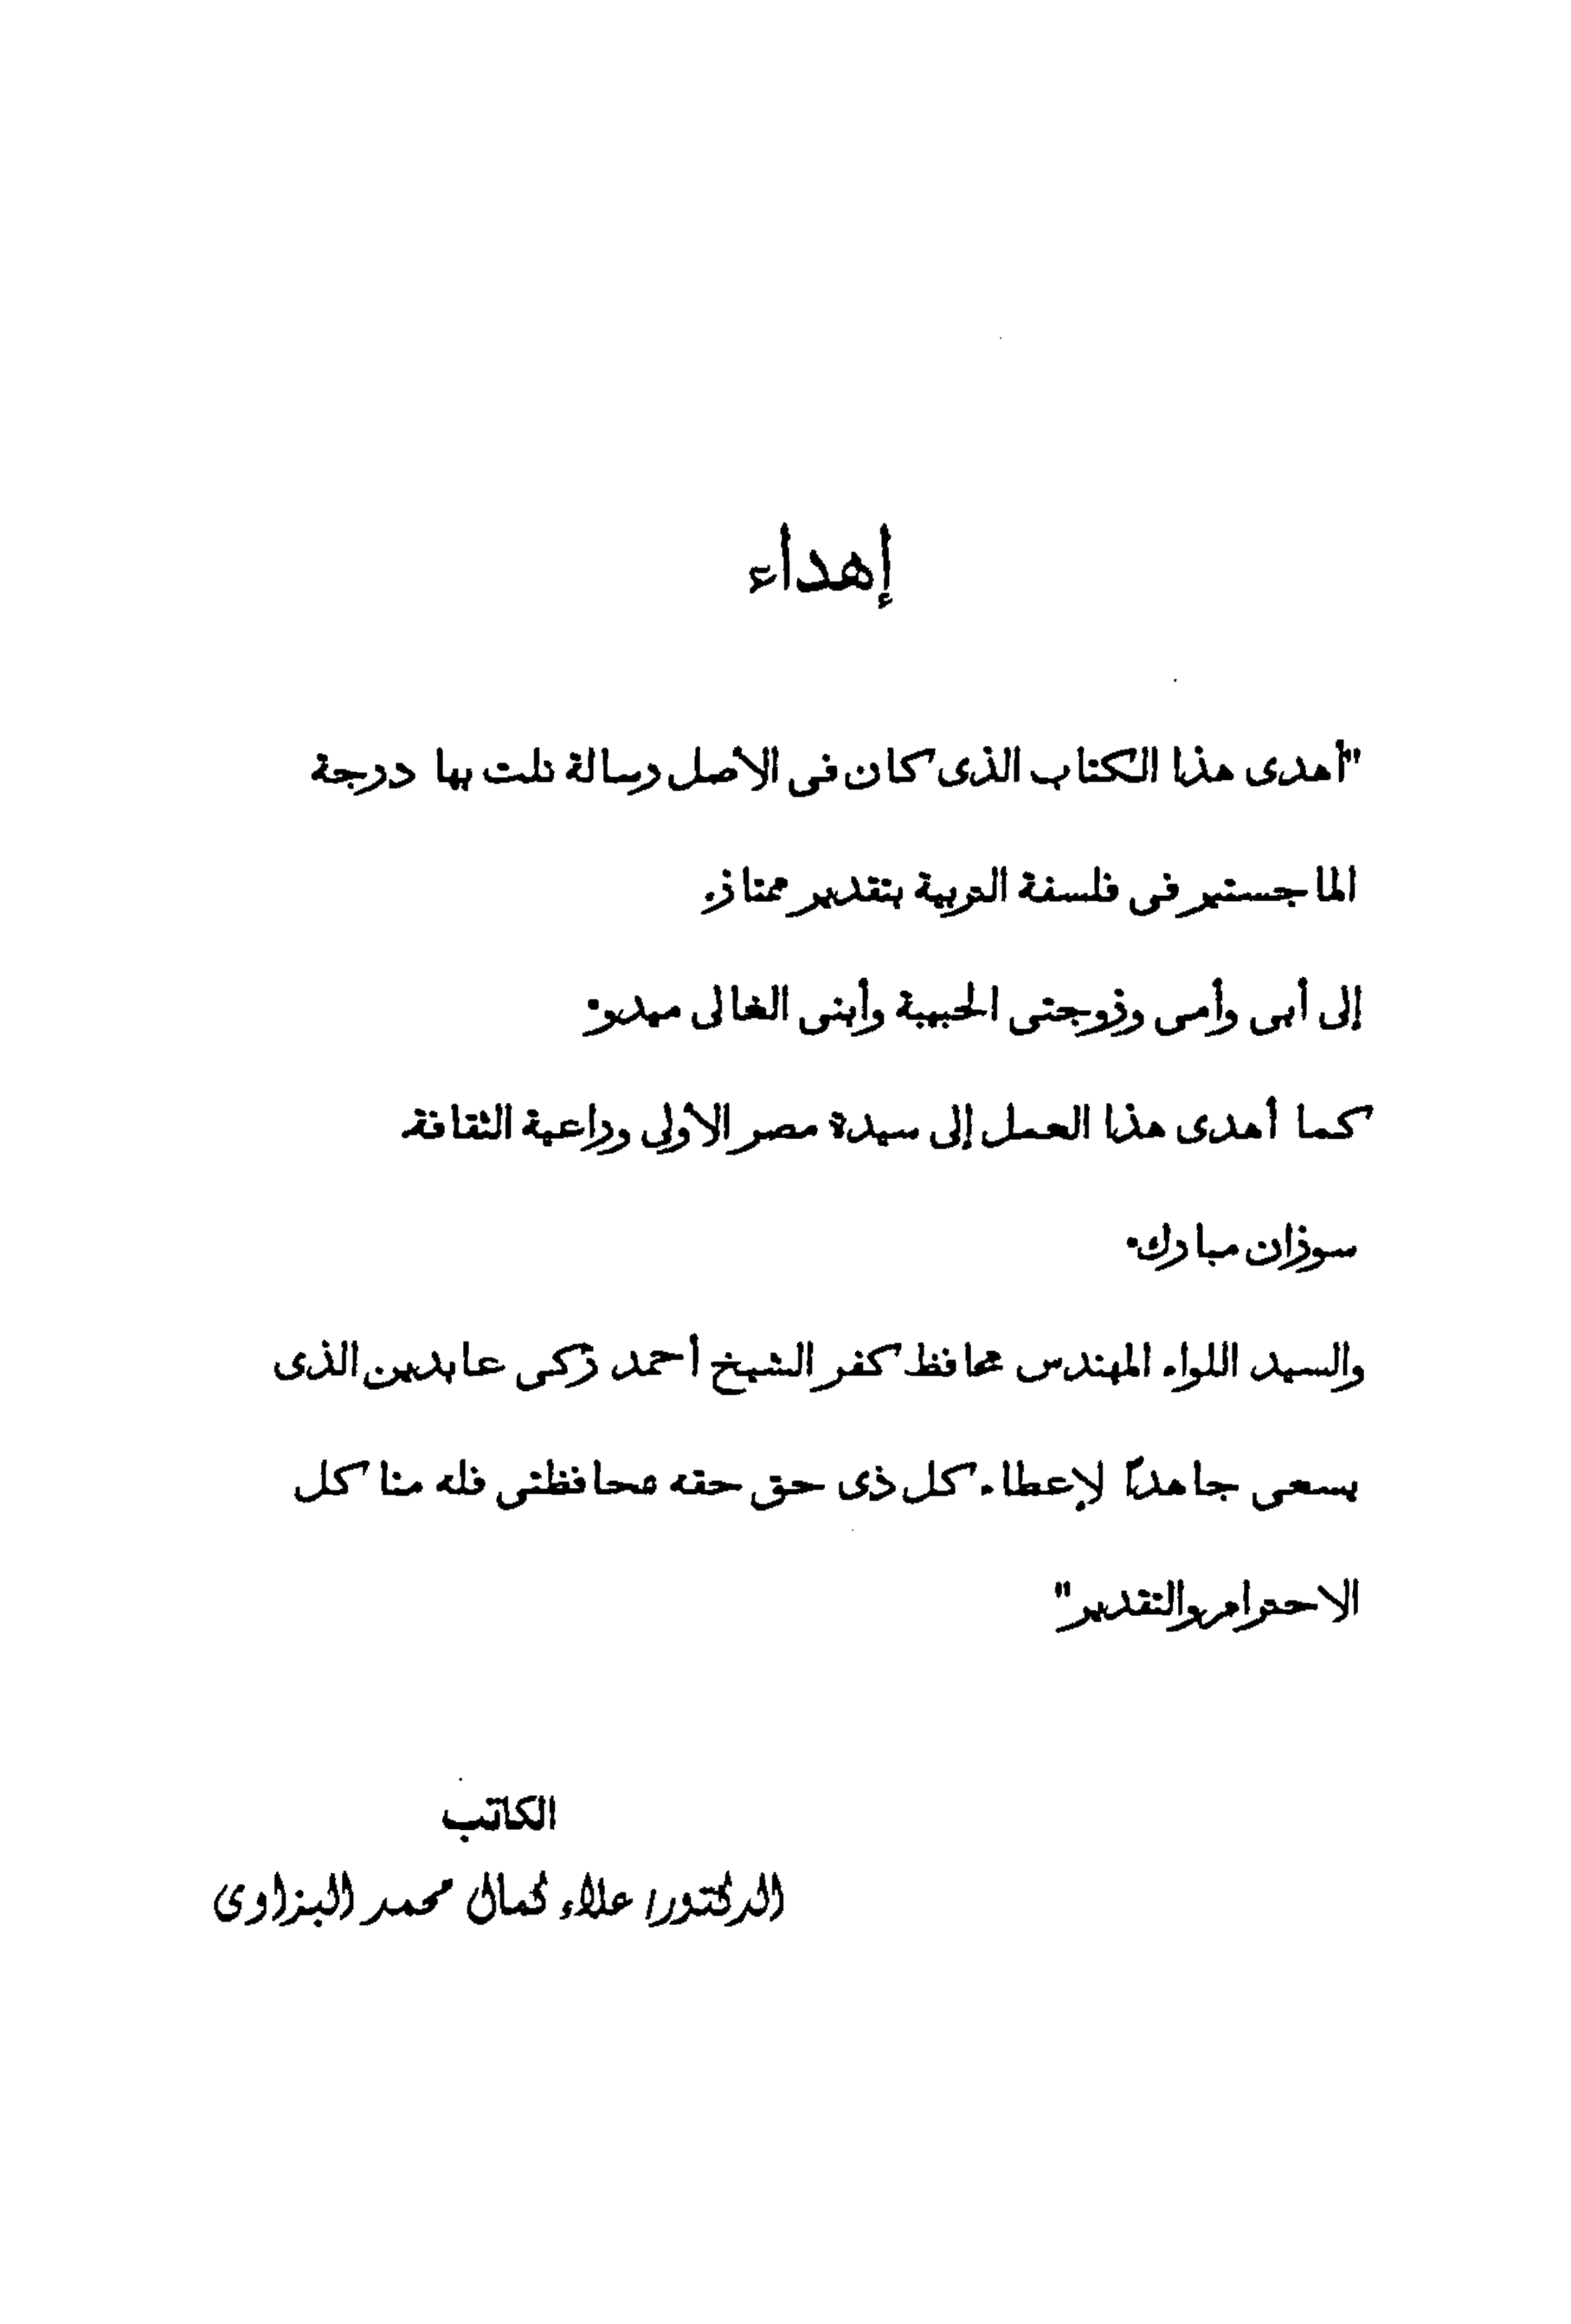 إهداء
"أهدى هذا الكتاب الذى كان فى الأصل رسالة نلت بها درجة
الماجستير فى فلسفة التربية بتقدير ممتاز.
إلى أبى وأمى وزوجتى الحبيبة وأبنى الغالى ميدو.
كما أهدى هذا العمل إلى سيدة مصر الأولى وراعية الثقافة
سوزان مبارك.
والسيد اللواء المهندس محافظ كفر الشيخ أحمد زكى عابدين الذى
يسعى جاهداً لإعطاء كل ذى حق حقه بمحافظتى فله منا كل
الاحترام والتقدير"
الكاتب
الدكتور/ علاء كمال محمد البنزاوى